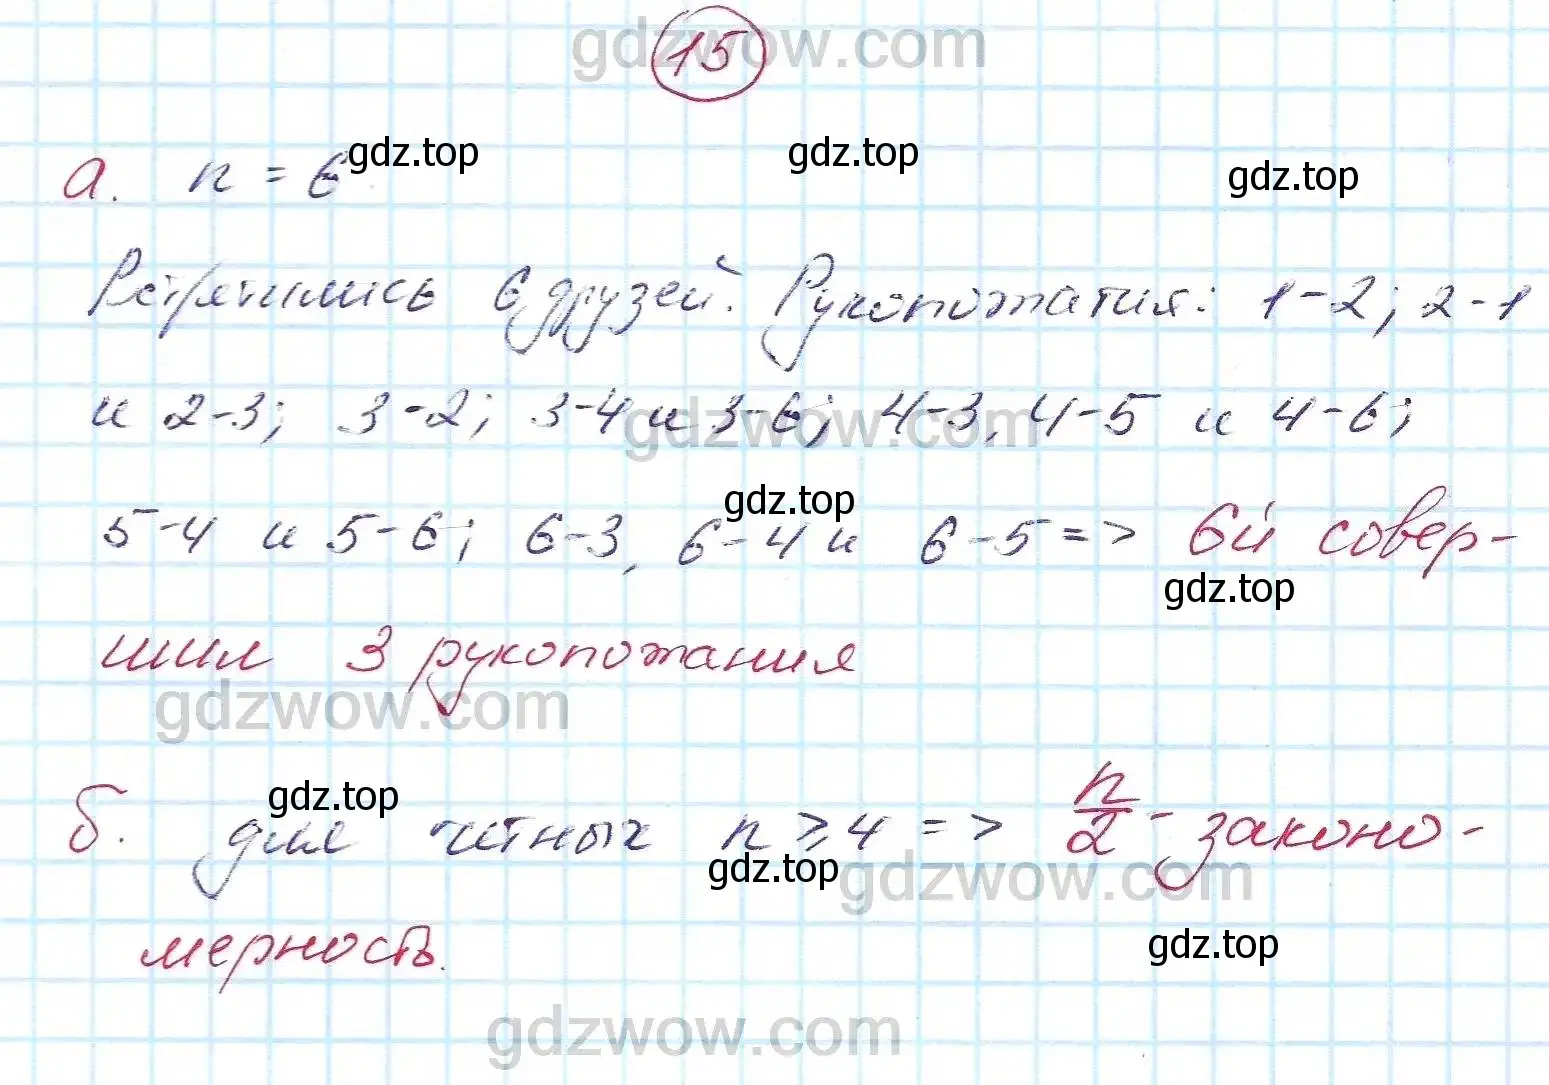 gdzwow.com
15
gdz.top gdz.top gdz.top
а. n = 6
Встретились 6 друзей. Рукопожатия: 1-2; 2-1
и 2-3; 3-2; 3-4 и 3-6; 4-3, 4-5 и 4-6;
gdzwow.com
gdz.top
5-4 и 5-6; 6-3, 6-4 и 6-5 => 6й совер-
gdz.top
шил 3 рукопожания
gdzwow.com
gdz.top
б. для четных n ⩾ 4 => n/2 - законо-
gdz.top gdzwow.com
мерность.
gdz.top
gdzwow.com